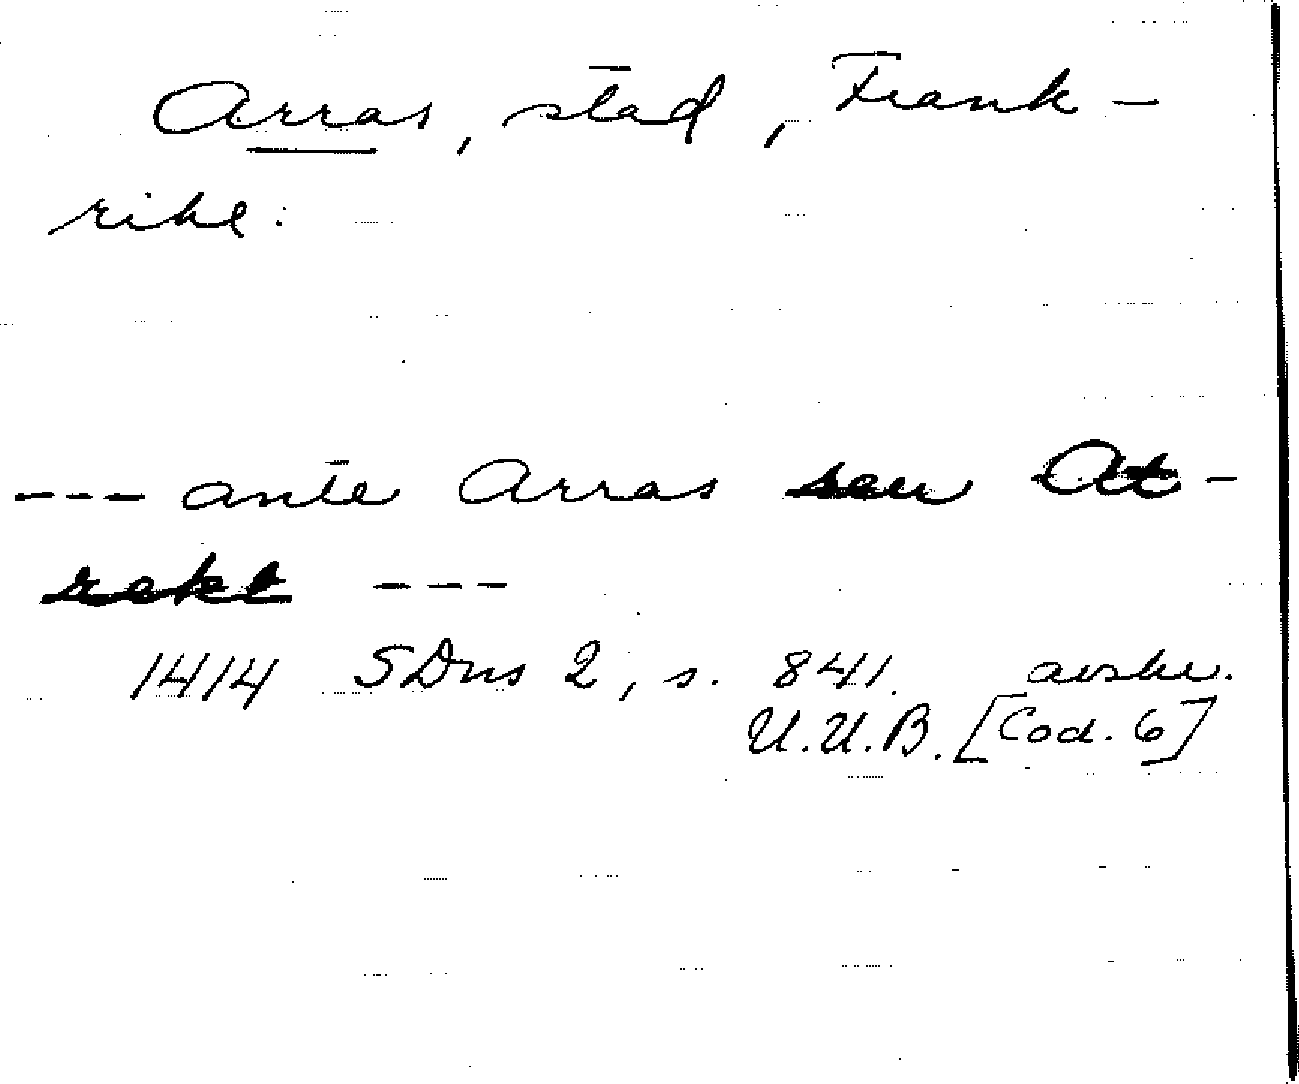 Arras, stad, Frank-
rike:
--- ante Arras seu At-
rekt ---
1414 SDns 2, s. 841. avskr.
U.U.B. [Cod. 6]